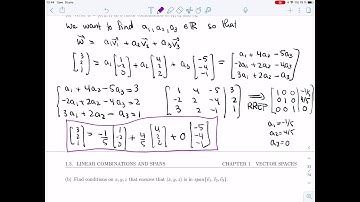 We want to find a₁, a₂, a₃ ∈ ℝ so that
w⃗ = a₁v⃗₁ + a₂v⃗₂ + a₃v⃗₃
[3 2 1] = a₁ [1 -2 3] + a₂ [4 2 2] + a₃ [-5 -4 -1] = [a₁ + 4a₂ - 5a₃ -2a₁ + 2a₂ - 4a₃ 3a₁ + 2a₂ - a₃]
a₁ + 4a₂ - 5a₃ = 3
-2a₁ + 2a₂ - 4a₃ = 2
3a₁ + 2a₂ - a₃ = 1
[1 4 -5 | 3
-2 2 -4 | 2
3 2 -1 | 1]
⟹ RREF
[1 0 1 | -1/5
0 1 0 | 4/5
0 0 0 | 0]
a₁ = -1/5
a₂ = 4/5
a₃ = 0
[3 2 1] = -1/5 [1 -2 3] + 4/5 [4 2 2] + 0 [-5 -4 -1]
1.3. LINEAR COMBINATIONS AND SPANS CHAPTER 1 VECTOR SPACES
(b) Find conditions on x, y, z that ensures that (x, y, z) is in span{v⃗₁, v⃗₂, v⃗₃}.